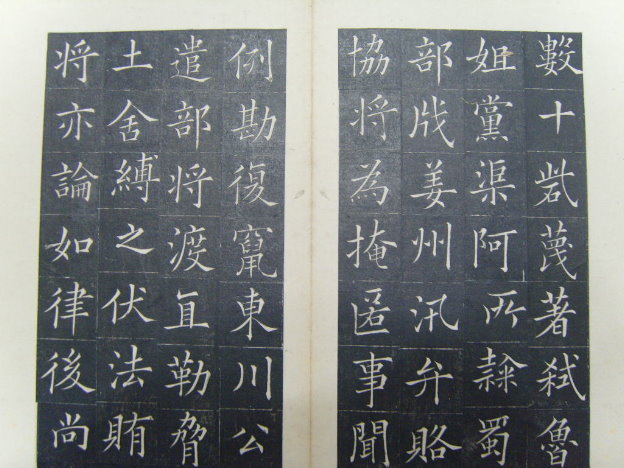 數十蔑著弑魯
姐黨渠阿所隸蜀
部戕姜州汛弁賂
協将為掩匿事聞
例勘復竄東川公
遣部将渡直勒脅
土舍縛之伏法賄
将亦論如律後尚